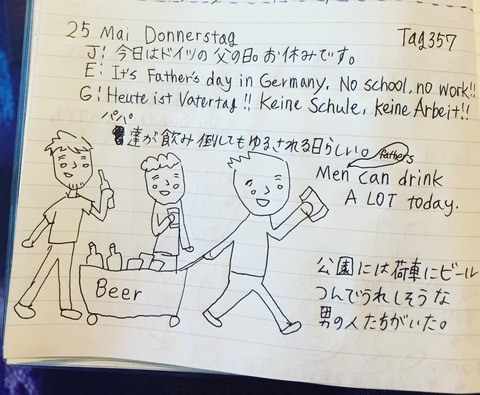 25 Mai Donnerstag Tag357
J: 今日はドイツの父の日。お休みです。
E: It's Father's day in Germany. No school, no work!!
G: Heute ist Vatertag!! Keine Schule, keine Arbeit!!
パパ
達が飲み倒してもゆるされる日らしい。
fathers
Men can drink
A LOT today.
Beer
公園には荷車にビール
つんでうれしそうな
男の人たちがいた。